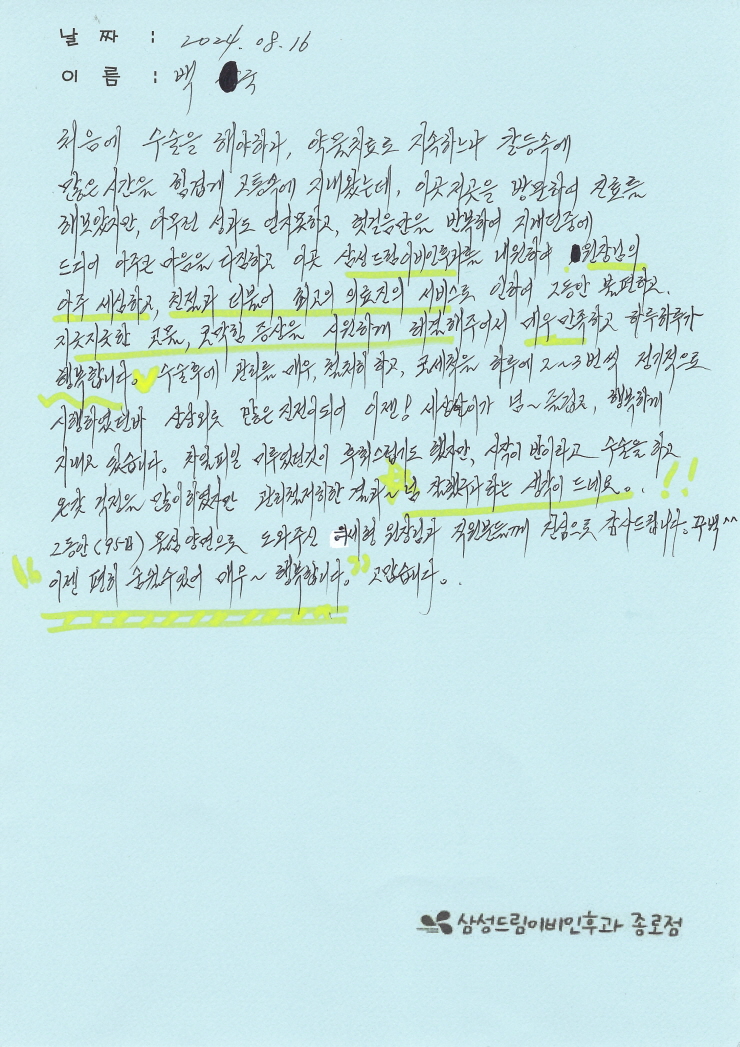 날 짜 : 2024. 08. 16
이 름 : 백 숙
처음에 수술을 해야하나, 약물치료로 지속하느냐 갈등속에
많은 시간을 힘겹게 고통속에 지내왔는데, 이곳저곳을 방문하여 진료를
해보았지만, 아무런 성과도 얻지못하고, 헛걸음만을 반복하여 지내던중에
드디어 아주큰 마음을 다짐하고 이곳 삼성드림이비인후과를 내원하여 원장님의
아주 세심하고, 친절과 더불어 최고의 의료진의 서비스로 인하여 그동안 불편하고.
지긋지긋한 콧물, 코막힘 증상을 시원하게 해결해주어서 매우 만족하고 하루하루가
행복합니다. 수술후에 관리를 매우, 철저히 하고, 코세척을 하루에 2~3번씩 정기적으로
시행하였던바 상상외로 많은 진전이되어 이젠! 세상살이가 넘~ 즐겁고, 행복하게
지내고 있습니다. 차일피일 미루었던것이 후회스럽기도 했지만, 시작이 반이라고 수술을 하고
온갖 걱정을 많이하였지만 관리철저히한 결과~ 넘 잘했구나하는 생각이 드네요. !!
그동안(95日) 물심양면으로 도와주신 세현 원장님과 직원분들께 진심으로 감사드립니다. 꾸벅^^
"이젠 편히 숨쉴수있어 매우~ 행복합니다." 고맙습니다.
삼성드림이비인후과 종로점